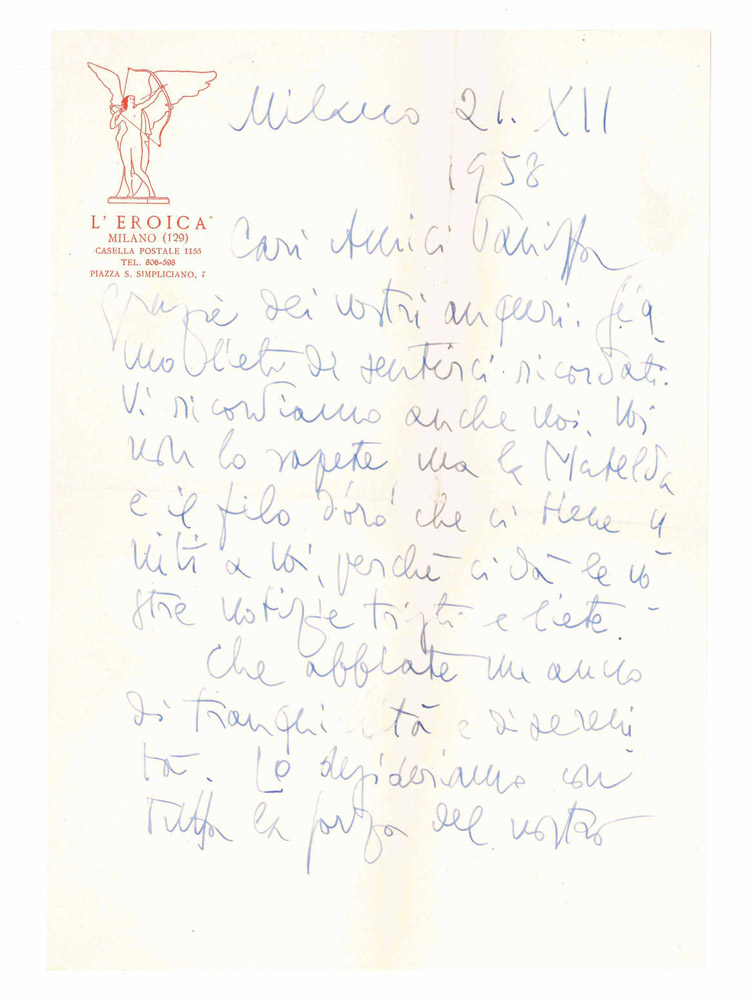 Milano 21. XII
1958
L' EROICA
MILANO (129)
CASELLA POSTALE 1155
TEL. 808-598
PIAZZA S. SIMPLICIANO, 2
Cari Amici
grazie dei vostri auguri.
mo lieti di sentirci ricordati.
Vi ricordiamo anche noi. Voi
non lo sapete, ma la Matelda
è il filo d'oro che ci tiene u
niti a voi, perché ci dà le vo
stre notizie tristi e liete.
Che abbiate un anno
di tranqui tà e di sereni
tà. Lo desideriamo con
tutta la forza del nostro